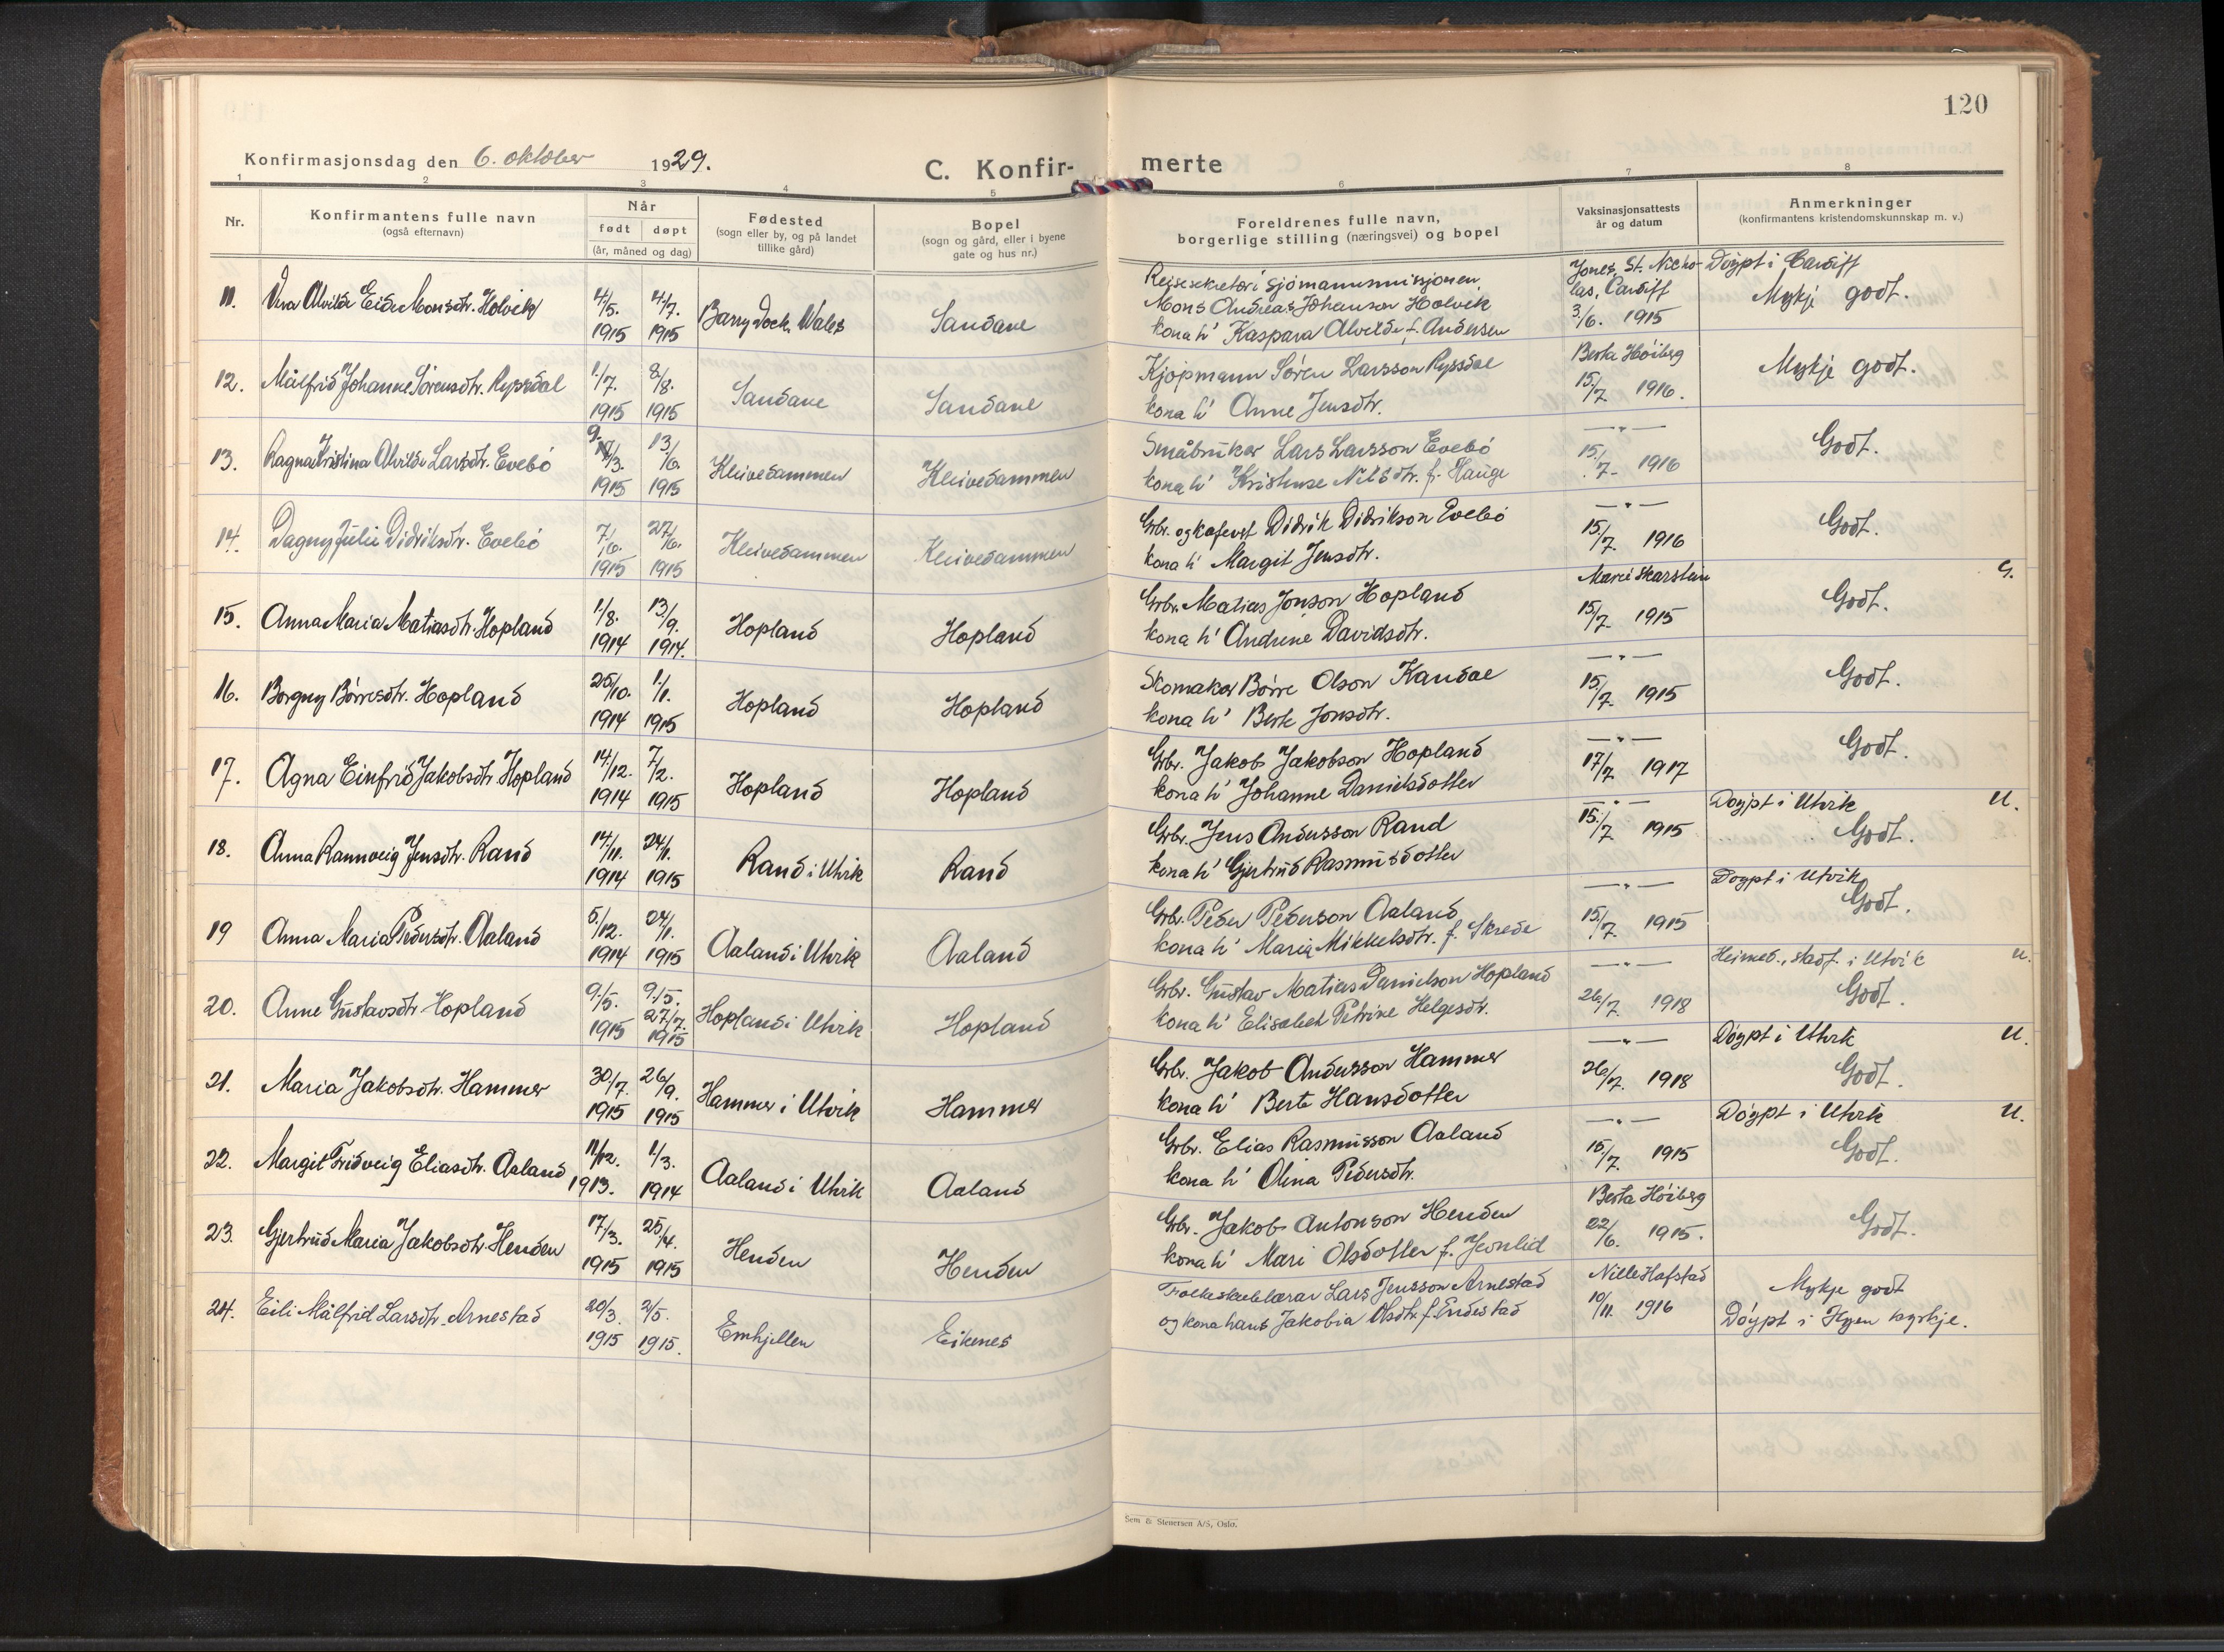 120
Konfirmasjonsdag den 6. oktober 1929. C. Konfir- merte
1 2 3 4 5 6 7 8
Nr. Konfirmantens fulle navn (også efternavn) Når født døpt (år, måned og dag) Fødested (sogn eller by, og på landet tillike gård) Bopel (sogn og gård, eller i byene gate og hus nr.) Foreldrenes fulle navn, borgerlige stilling (næringsvei) og bopel Vaksinasjonsattests år og datum Anmerkninger (konfirmantens kristendomskunnskap m. v.)
11. Vera Alvilde Eide Monsdtr. Holvik 4/5. 1915 4/7. 1915 Barry Dock, Wales Sandane
Reisesekretær i sjømannsmisjonen
Mons Andreas Johanson Holvik
kona h' Kaspara Alvilde f. Andersen
Jones, St. Nicho-
las, Cardiff
3/6. 1915
Døypt i Cardiff
Mykje godt.
12. Målfrid Johanne Sørensdtr. Ryssdal 1/7. 1915 8/8. 1915 Sandane Sandane
Kjøpmann Søren Larsson Ryssdal
kona h' Anne Jensdtr.
Berta Høiberg
15/7. 1916.
Mykje godt.
13. Ragna Kristina Alvilde Larsdtr. Evebø 9. /3. 1915 13/6. 1915 Kleivedammen Kleivedammen
Småbruker Lars Larsson Evebø
kona h' Kristense Nilsdtr. f. Hauge
—"—
15/7. 1916
Godt.
14. Dagny Julie Didriksdtr. Evebø 7/6. 1915 27/6. 1915 Kleivedammen Kleivedammen
Grbr. og kafevert Didrik Didrikson Evebø
kona h' Margit Jensdtr.
—"—
15/7. 1916
Godt.
15. Anna Maria Matiasdtr. Hopland 1/8. 1914 13/9. 1914. Hopland Hopland
Grbr. Matias Jonson Hopland
kona h' Andrine Davidsdtr.
Marie Skarstein
15/7. 1915
Godt.
G.
16. Borgny Børresdtr. Hopland 25/10. 1914 1/1. 1915 Hopland Hopland
Skomaker Børre Olson Kandal
kona h' Berte Jonsdtr.
—"—
15/7. 1915
Godt.
17. Agna Einfrid Jakobsdtr. Hopland 14/12. 1914 7/2. 1915 Hopland Hopland
Grbr. Jakob Jakobson Hopland
kona h' Johanne Danielsdotter
—"—
17/7. 1917
Godt.
18. Anna Rannveig Jensdtr. Rand 14/11. 1914 24/1. 1915 Rand i Utvik Rand
Grbr. Jens Andersson Rand
kona h' Gjertrud Rasmusdotter
—"—
15/7 1915
Døypt i Utvik
Godt.
U.
19 Anna Maria Pedersdtr. Aaland 5/12. 1914 24/1. 1915 Aaland i Utvik Aaland
Grbr. Peder Pederson Aaland
kona h' Maria Mikkelsdtr. f. Skrede
—"—
15/7. 1915
Døypt i Utvik
Godt.
20. Anne Gustavsdtr. Hopland 9/5. 1915 9/5. 27/7. 1915 Hopland i Utvik Hopland
Grbr. Gustav Matias Danielson Hopland
kona h' Elisabet Petrine Helgesdtr.
—"—
26/7. 1918
Heimed., stadf. i Utvik
Godt.
U.
21. Maria Jakobsdtr. Hammer 30/7. 1915 26/9. 1915 Hammer i Utvik Hammer
Grbr. Jakob Andersson Hammer
kona h' Berte Hansdotter
—"—
26/7. 1918
Døypt i Utvik
Godt.
U.
22. Margit Fridveig Eliasdtr. Aaland 11/12. 1913. 1/3. 1914 Aaland i Utvik Aaland
Grbr. Elias Rasmusson Aaland
kona h' Olina Pedersdtr.
—"—
15/7. 1915
Døypt i Utvik
Godt.
U.
23. Gjertrud Maria Jakobsdtr. Henden 17/3. 1915 25/4. 1915 Henden Henden
Grbr. Jakob Antonson Henden
kona h' Mari Olsdotter f.
Berta Høiberg
22/6. 1915.
Godt.
24. Eili Målfrid Larsdtr. Arnestad 20/3. 1915 2/5. 1915. Emhjellen Eikenes
Folkeskulelærar Lars Jensson Arnestad
og kona hans Jakobia Olsdtr. f. Endestad
Nille Hafstad
10/11. 1916
Mykje godt
Døypt i Hyen kyrkje.
Sem & Stenersen A/S, Oslo.